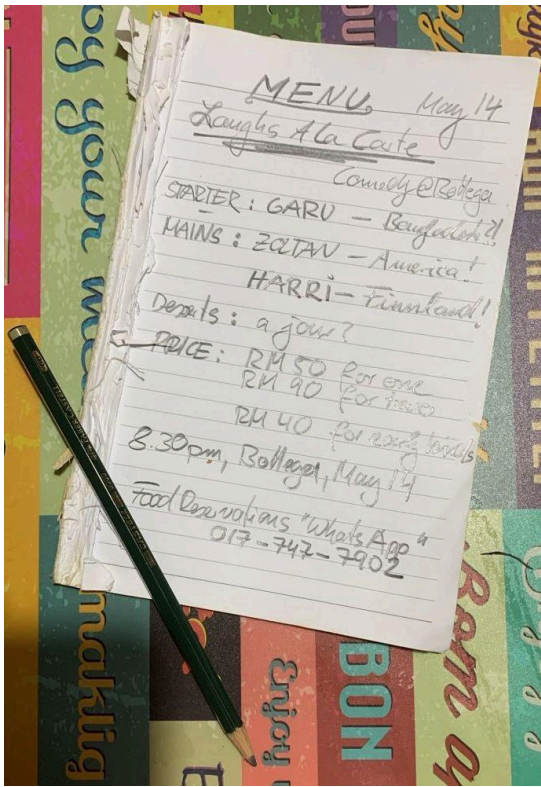 MENU May 14
Laughs A La Carte
Comedy @ Bottega
STARTER : GARU – Bangladesh?!
MAINS : ZOLTAN – America!
HARRI – Finnland!
Desserts : a jour?
PRICE : RM 50 for one
RM 90 for two
RM 40 for early birds
8.30pm, Bottega, May 14
Food Reservations "WhatsApp"
017-747-7902
by your me
mahlig
Enjoy
BON